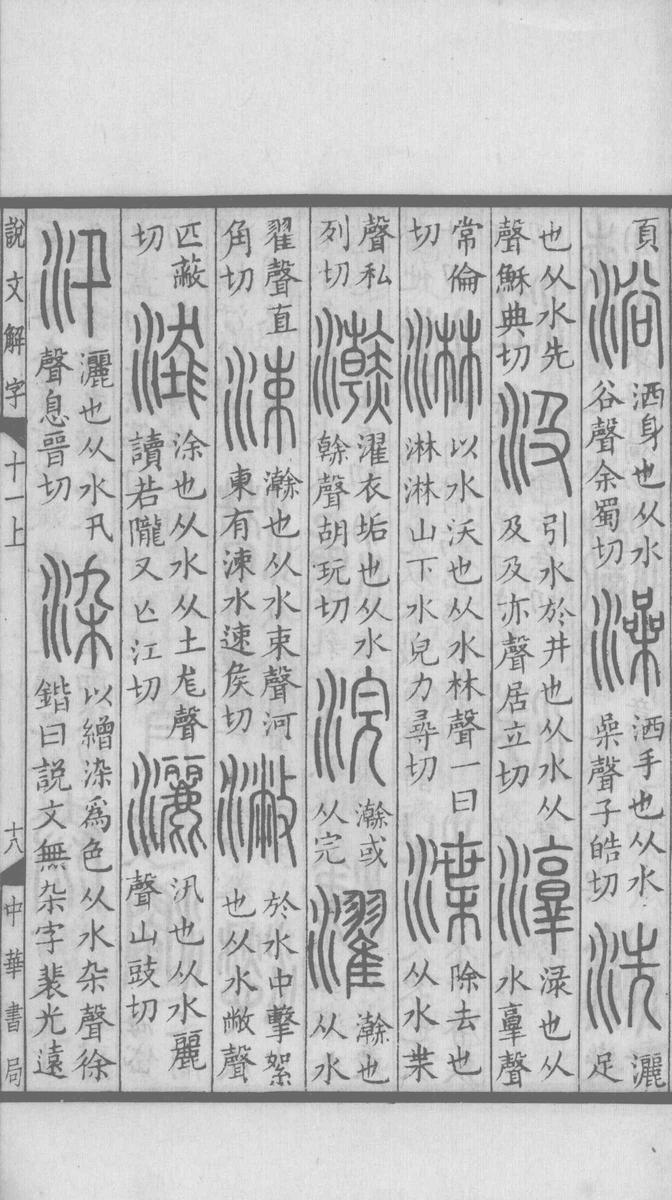 頁浴洒身也从水谷聲余蜀切澡洒手也从水喿聲子皓切洗灑足
也从水先聲穌典切汲引水於井也从水从及及亦聲居立切淳渌也从水𦎫聲
常倫切淋以水沃也从水林聲一曰淋淋山下水皃力尋切渫除去也从水枼
聲私列切濯衣垢也从水聲胡玩切浣或从完濯也从水
翟聲直角切涑也从水束聲河東有涑水速矦切潎於水中擊絮也从水敝聲
匹蔽切涂也从水从土尨聲讀若隴又亾江切灑汛也从水麗聲山豉切
汛灑也从水卂聲息晉切染以繒染爲色从水杂聲徐鍇曰説文無杂字裴光遠
說文解字 十一上 十八 中華書局